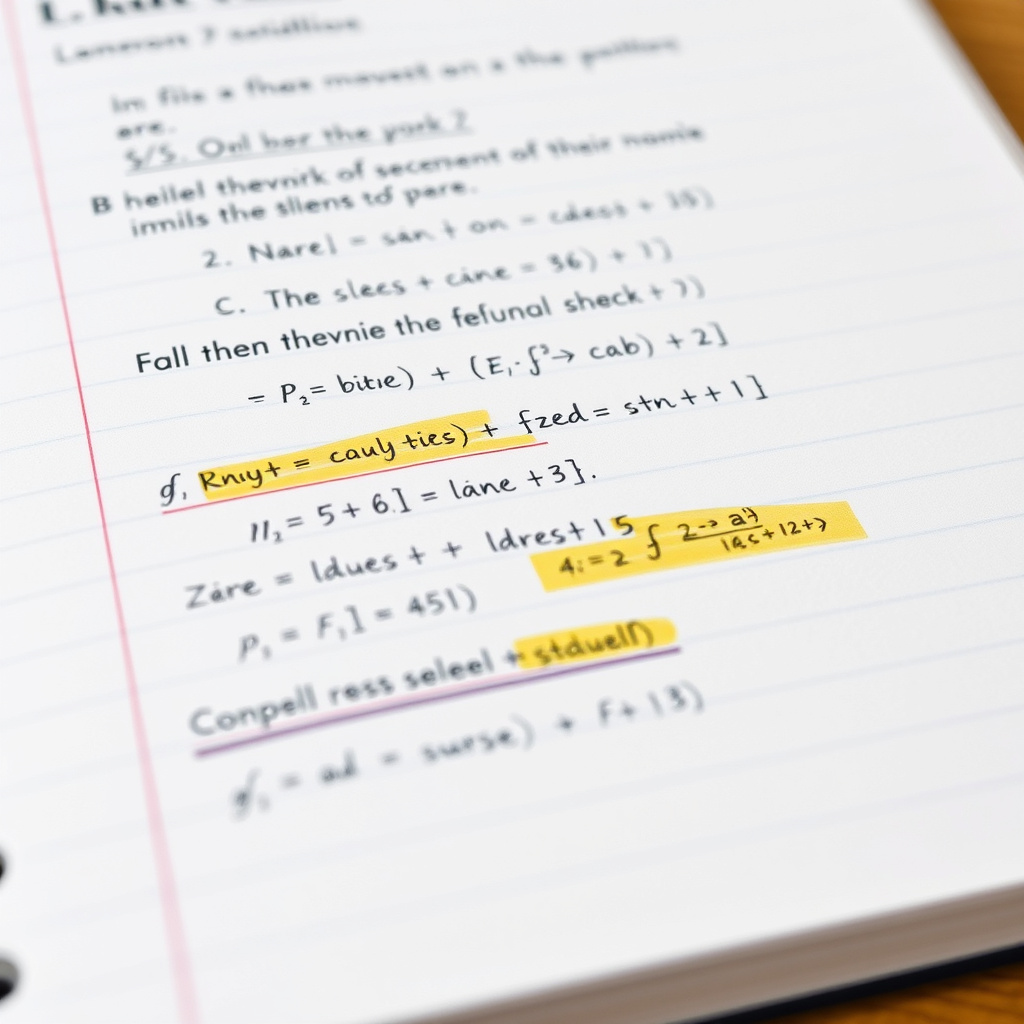 im file a fhas movest on a the
are.
S/S. Onl ber the york 2
B heilel thevnirk of secenent of their namie
innils the sliens to pare.
2. Narel = san + on - cdest + 35)
C. The slees + cine = 36) + 1)
Fall then thevnie the fefunal sheck + ))
= P₂= bitie) + (E₁. f³→ cab) + 2]
Rnıy+ = cauly ties) + fzed = stn + + 1]
11₂ = 5 + 6.] = láne +3].
Záre = ldues + + ldrest 15
4:=2 ∫ 2→ a)
P₁ = F₁] = 451)
Conpell ress seleel + stduell)
= ad = suese) + F+ 13)